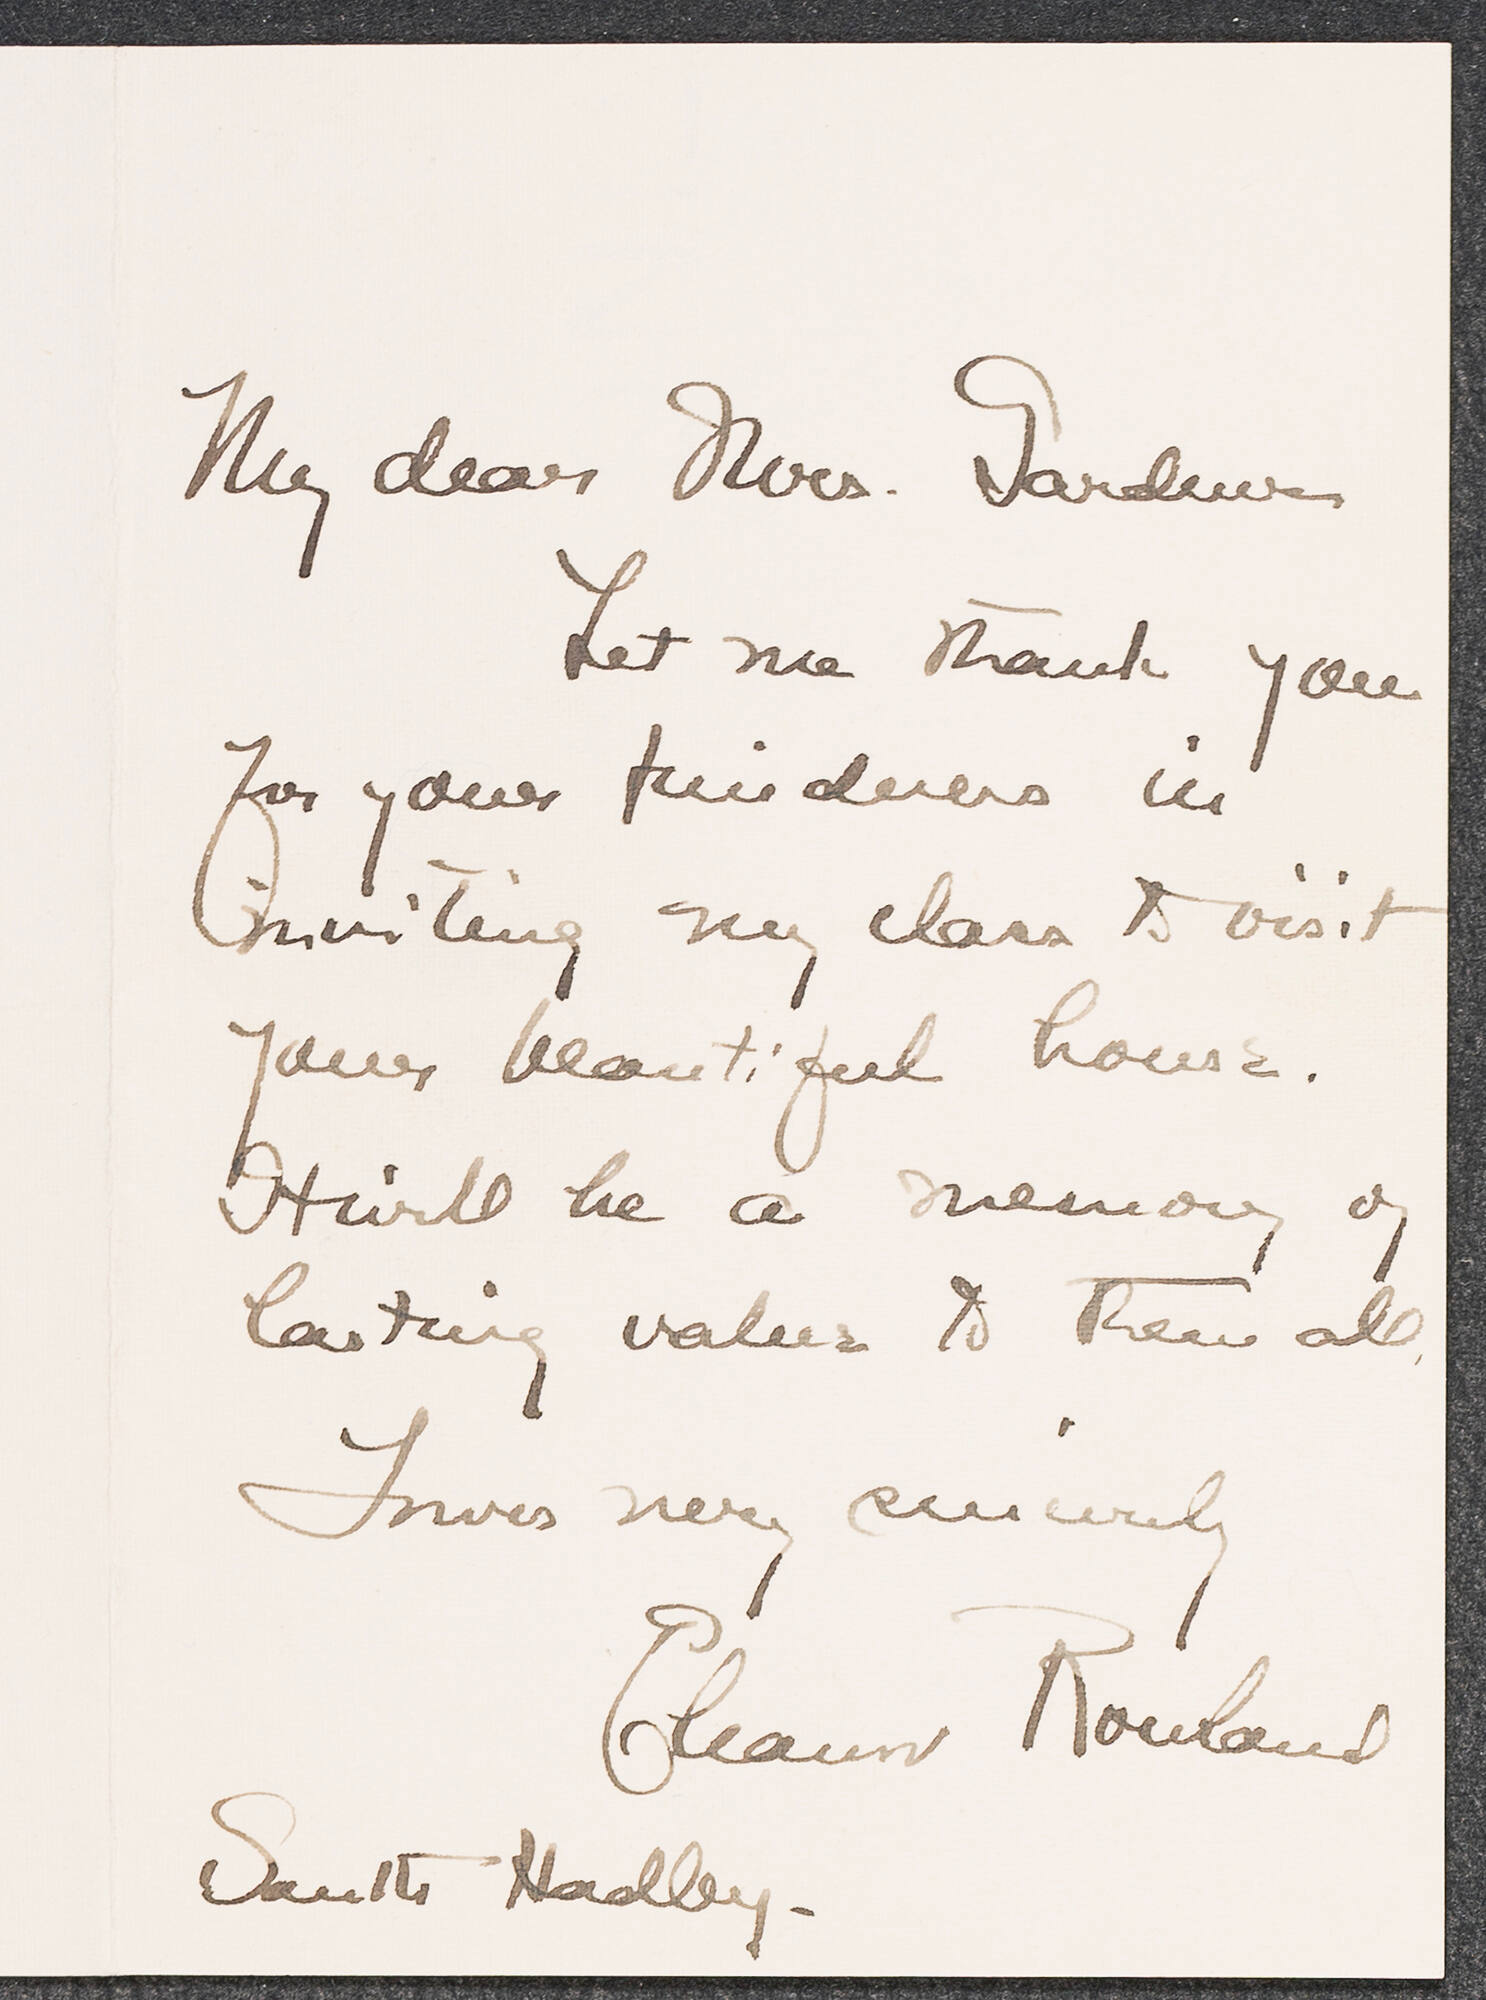 My dear Mrs. Gardner
Let me thank you
for your kindness in
inviting my class to visit
your beautiful house.
It will be a memory of
lasting value to them all.
Yours very sincerely
Eleanor Rowland
South Hadley-